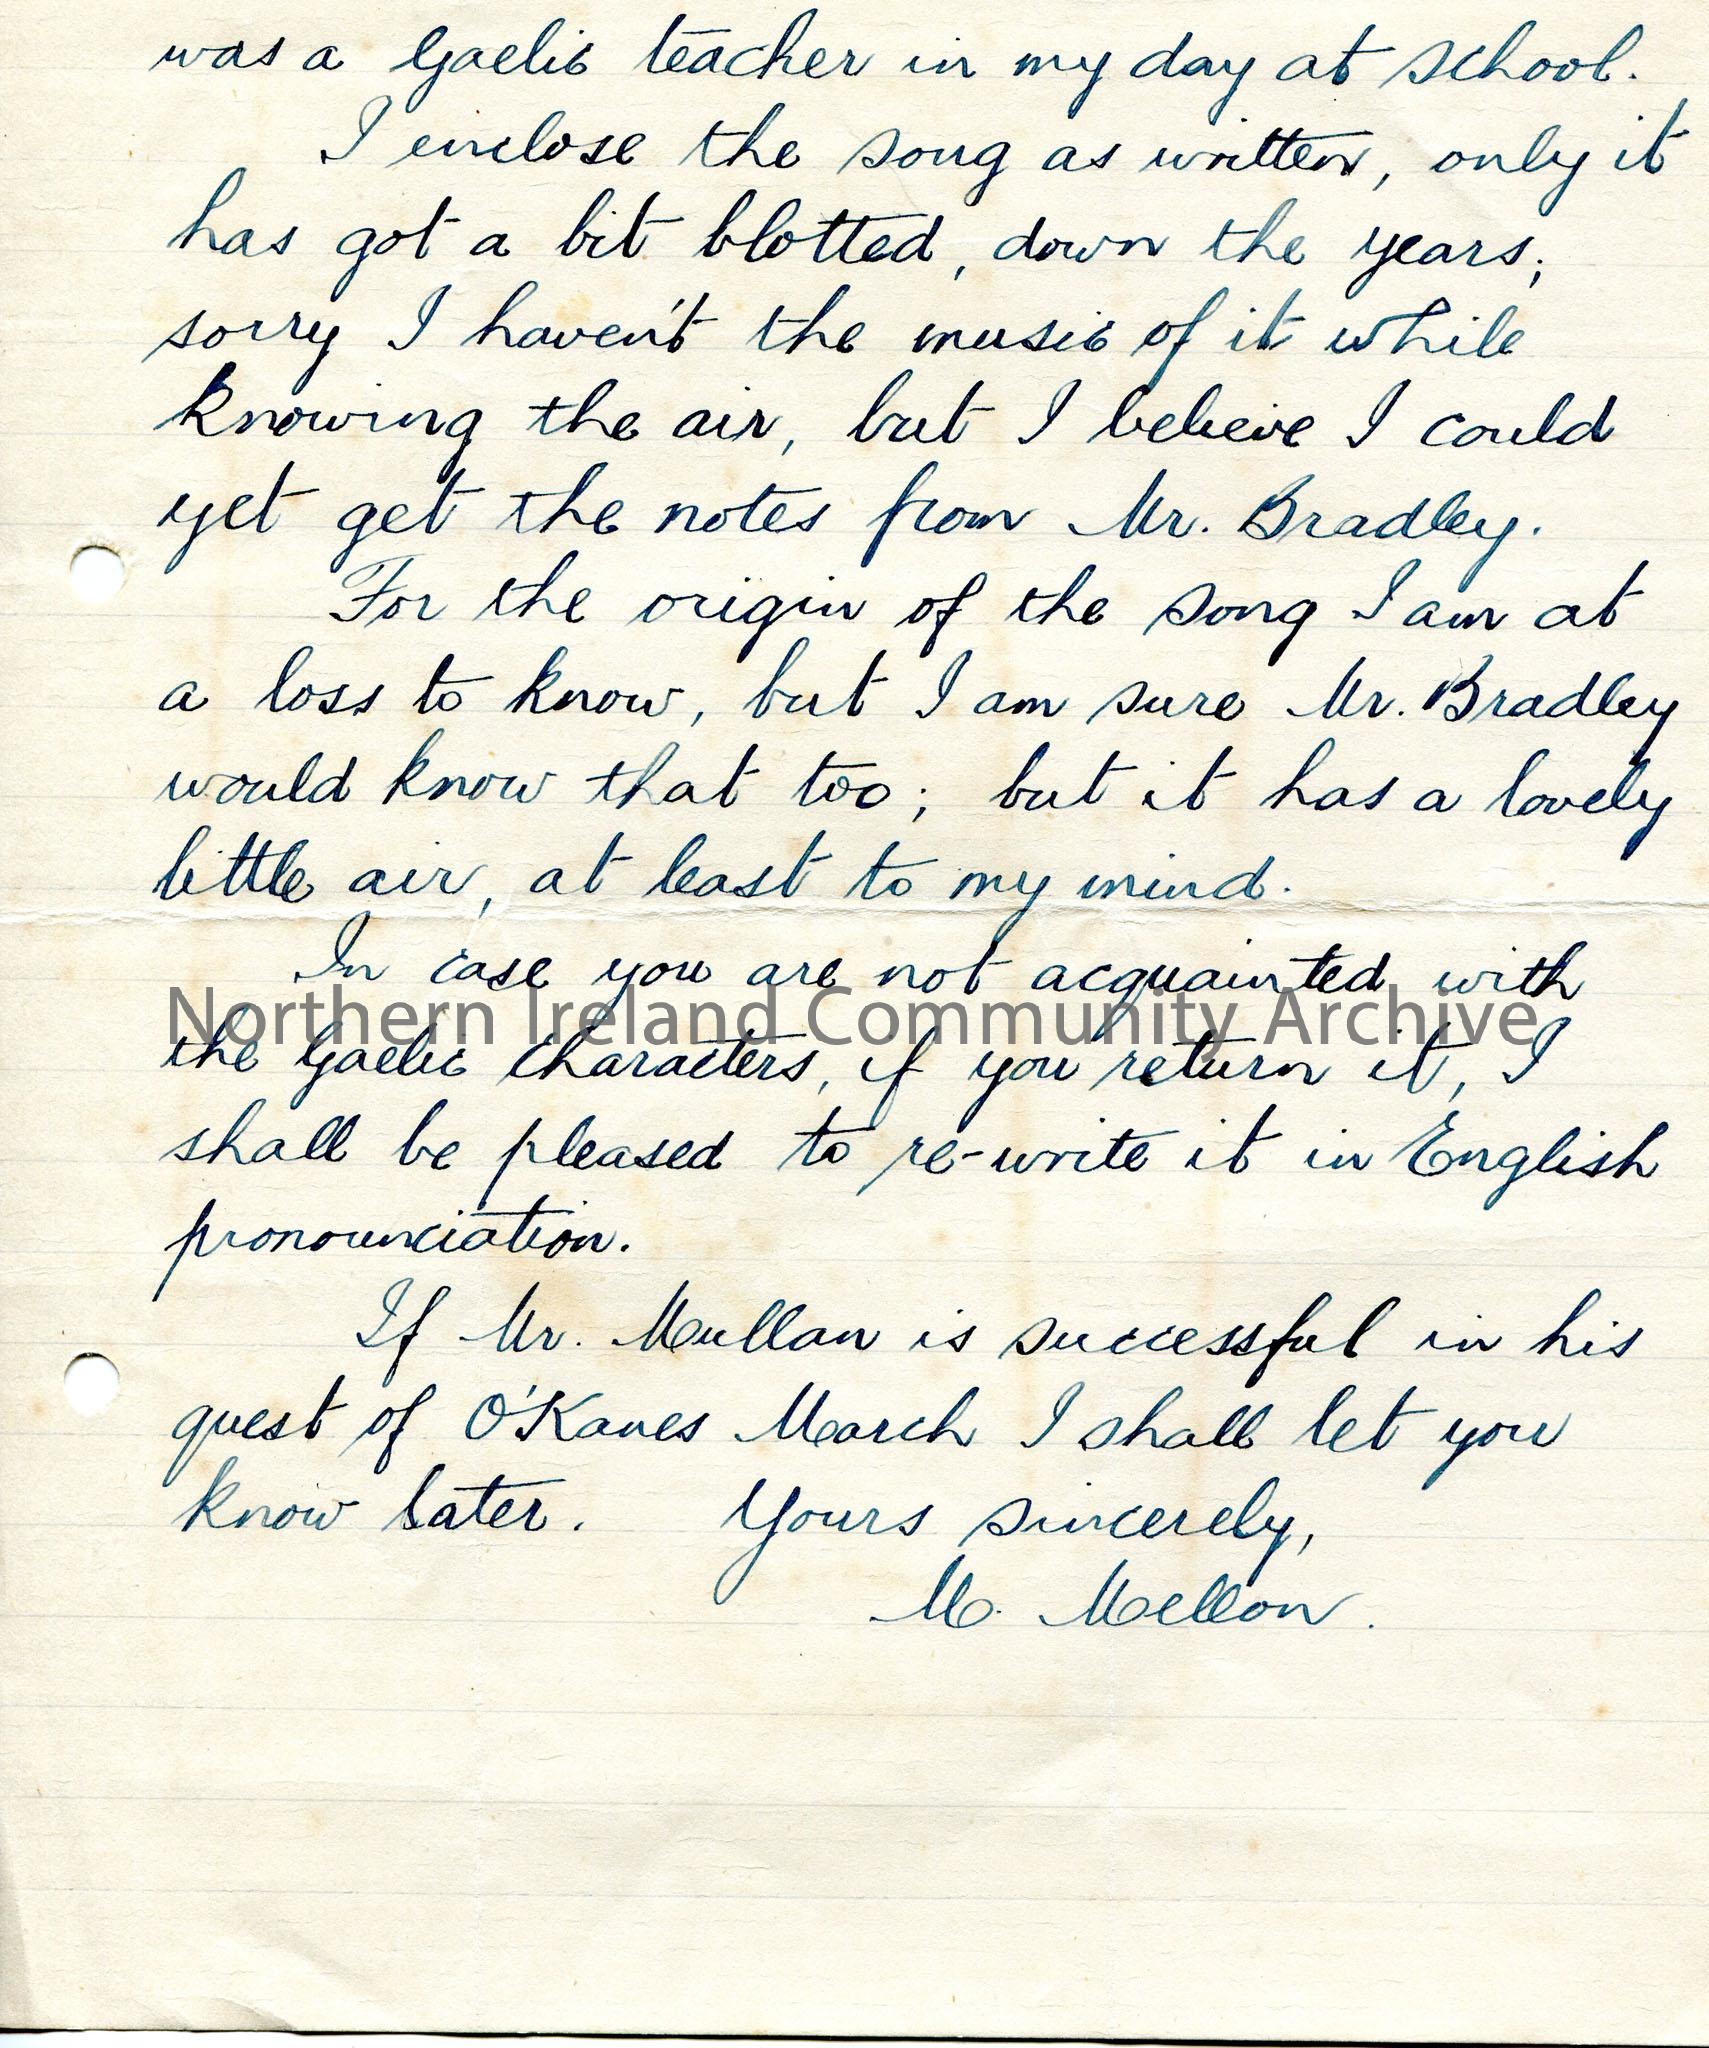 was a Gaelic teacher in my day at school.
I enclose the song as written, only it
has got a bit blotted, down the years;
sorry I haven't the music of it while
knowing the air, but I believe I could
yet get the notes from Mr. Bradley.
For the origin of the song I am at
a loss to know, but I am sure Mr. Bradley
would know that too; but it has a lovely
little air, at least to my mind.
In case you are not acquainted with
Northern Ireland Community Archive
the Gaelic characters, if you return it, I
shall be pleased to re-write it in English
pronounciation.
If Mr. Mullan is successful in his
quest of O'Kanes March I shall let you
know later. Yours sincerely,
M. Mellon.